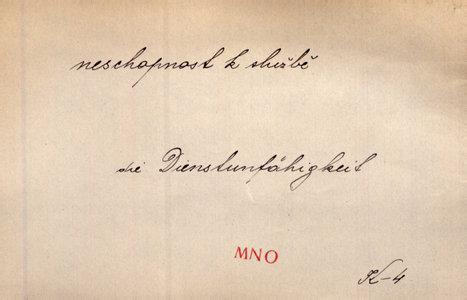 neschopnost k službě
die Dienstunfähigkeit
MNO
K-4